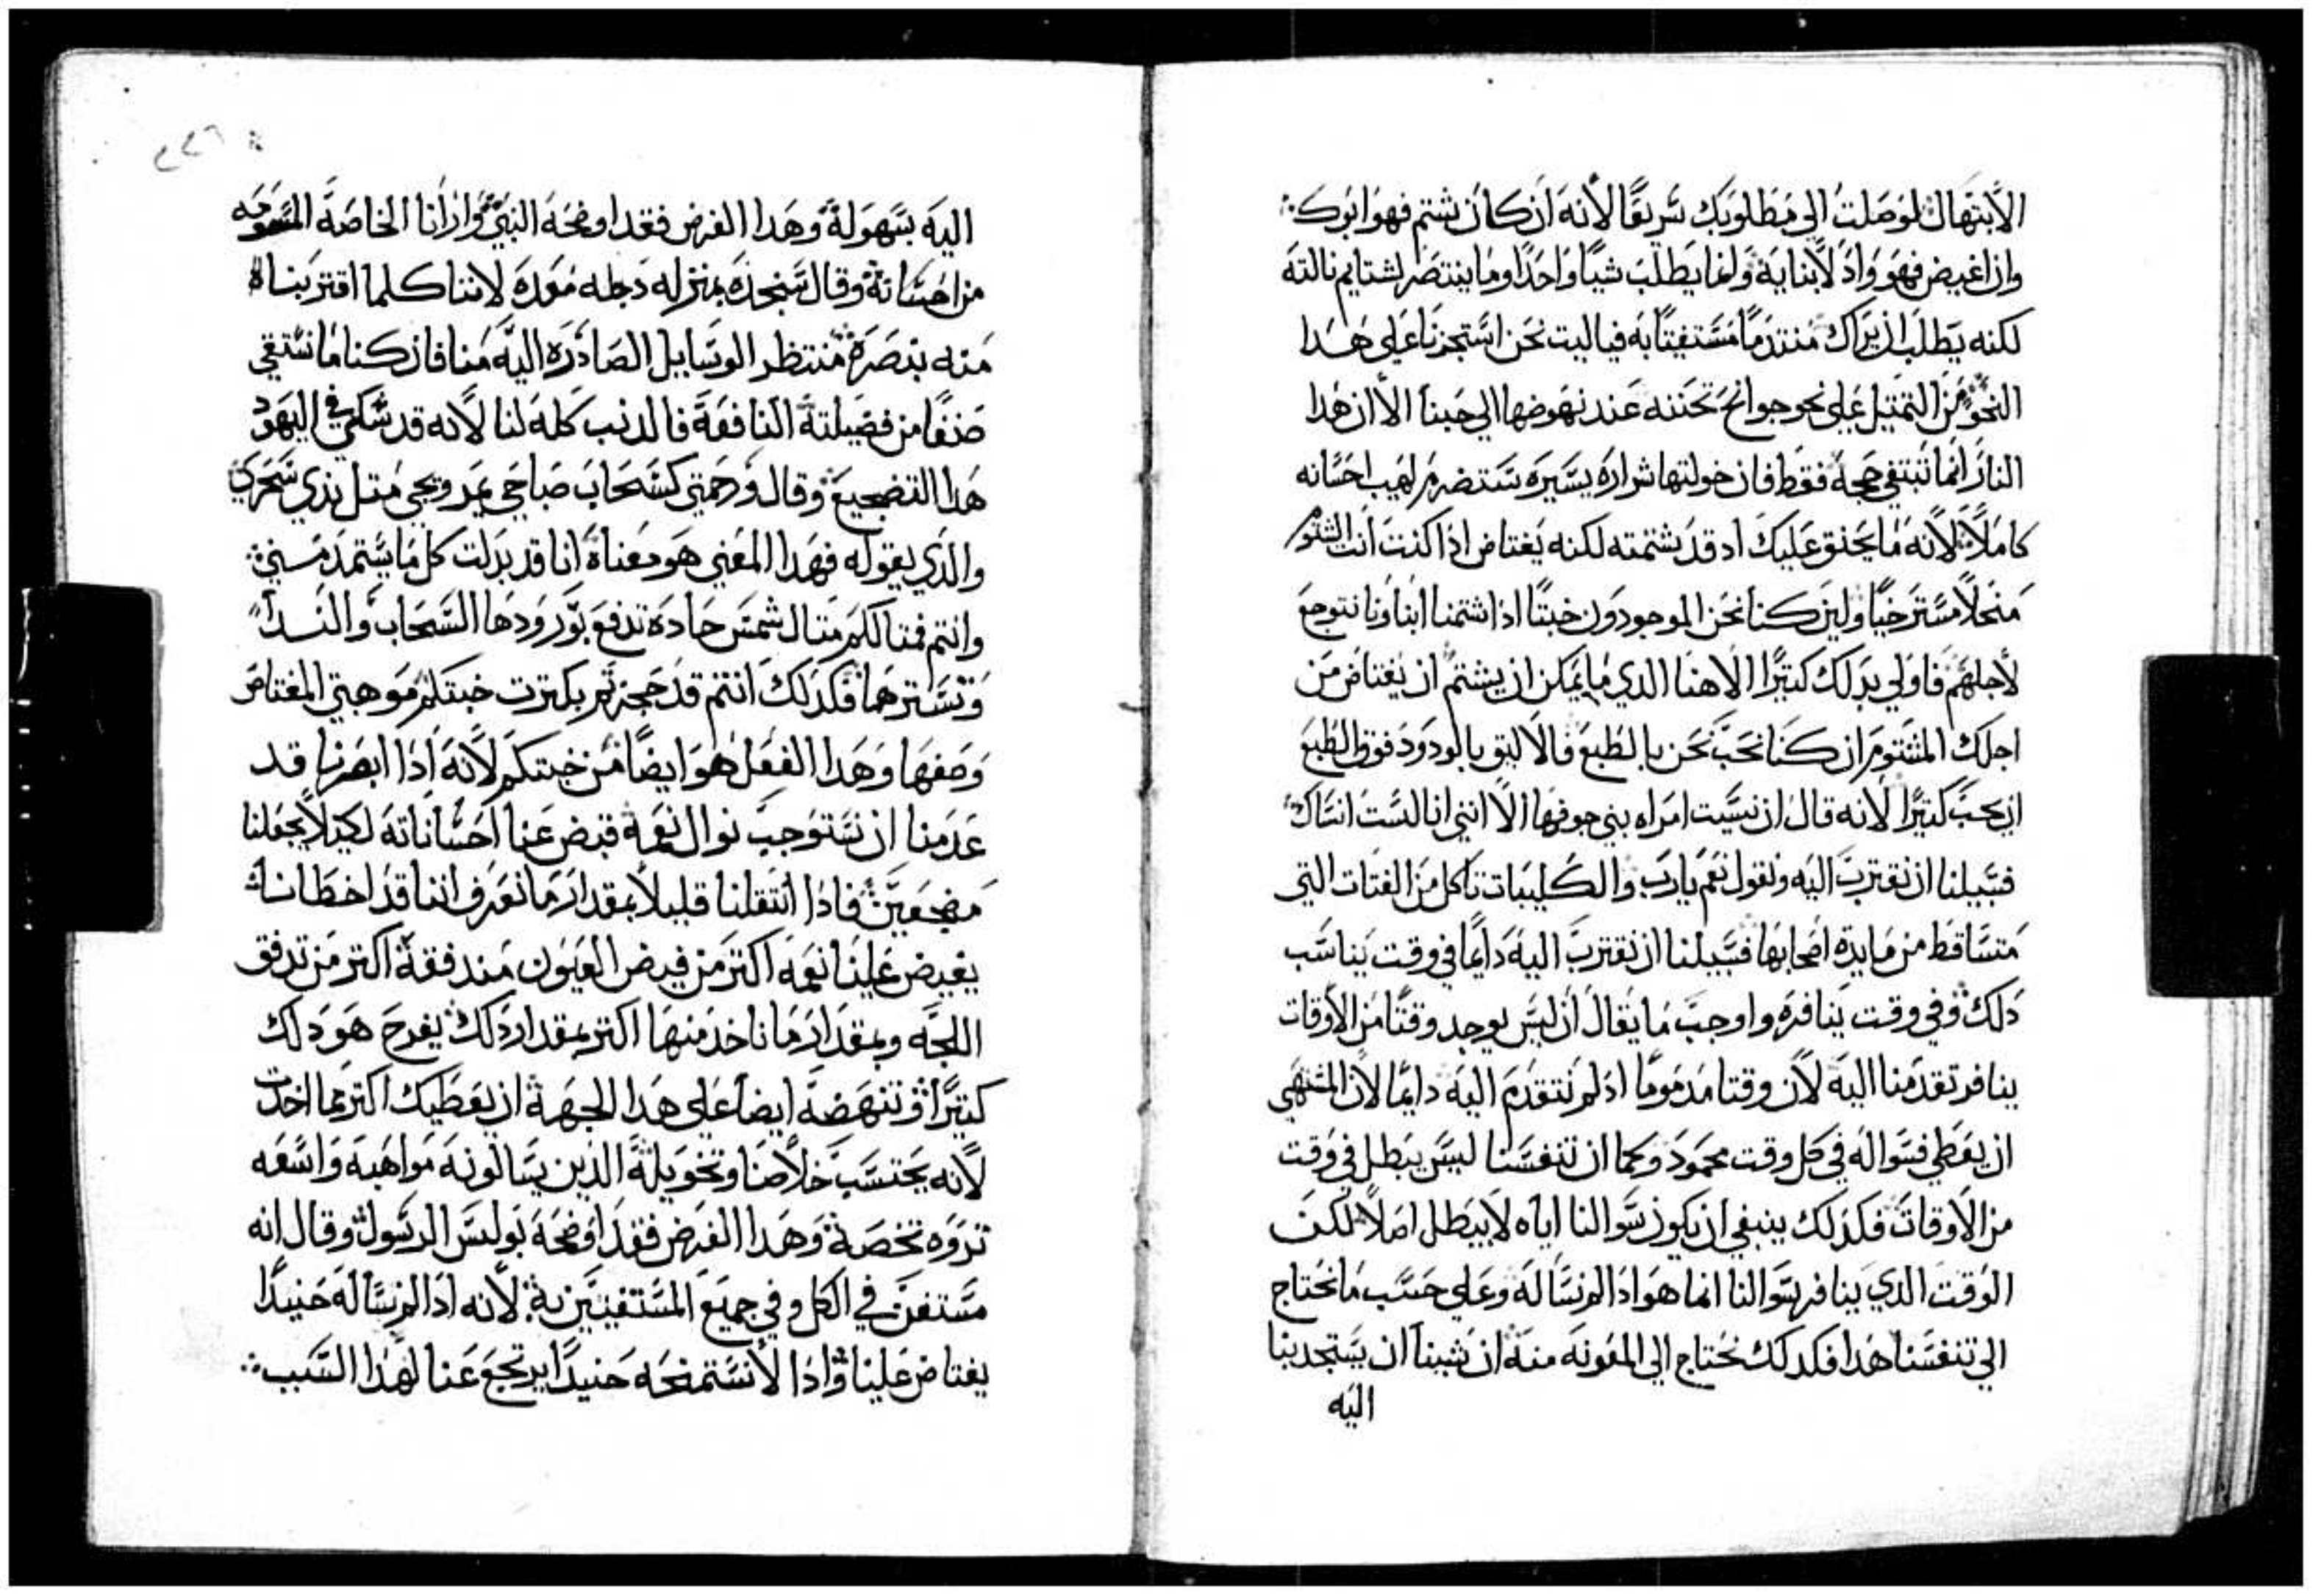 الأبتهال لوصلت الي مطلوبك سريعًا لأنه ان كان شتم فهو ابوك
وان اغيض فهو واد لأبنايه وانما يطلب شيًا واحدًا وما ينتصر لشتايم نالته
لكنه يطلب ان يراك متندمًا مستغيتًا به فياليت نحن استجزنا علي هدا
النحو من التمتيل علي نحو جوانح تحننه عند نهوضها الي حبنا الا ان هدا
النار انما تبتغي حجة فقط فان خولتها شراره يسيره ستضرم لهيب احسانه
كاملاً لأنه ما يحنق عليك اد قد شتمته لكنه يغتاض اذا كنت انت الشتوم
منحلاً مسترخيًا ولين كنا نحن الموجودون خبتًا اذا شتمنا ابناونا نتوجع
لأجلهم فاولي بدلك كتيرًا الاهنا الدي ما يمكن ان يشتم ان يغتاض من
اجلك المشتوم ان كنا نحب نحن بالطبع فالأليق بالودود فوق الطبع
ان يحب كتيرًا لأنه قال ان نسيت امراه بني جوفها الأ انني انا لست انساك
فسبيلنا ان نقترب اليه ونقول نعم يارب والكليبات تاكل من الفتات التي
متساقط من مايدة اصحابها فسبيلنا ان نقترب اليه دايمًا في وقت يناسب
دلك وفي وقت ينافره واوجب ما يقال ان ليس يوجد وقتًا من الأوقات
ينافر تقدمنا اليه لأن وقتا مدمومًا ادلم نتقدم اليه دايمًا لأن المشتهي
ان يعطي فسواله في كل وقت محمود وكما ان تنفسنا ليس يبطل في وقت
من الأوقات فكدلك ينبغي ان يكون سوالنا اياه لأ يبطل اصلاً لكن
الوقت الدي ينافر سوالنا انما هو ادا لم نساله وعلي حسب ما نحتاج
الي تنفسنا هدا فكدلك نحتاج الي المعونه منه ان شينا ان يستجدبنا
اليه
اليه بسهولة وهدا الغرض فقد اوضحه النبي وارانا الخاصة المتوجه
من احسانة وقال سنجده بمنزله دجله معده لاننا كلما اقتربنا
منه بنصره منتظر الوسايل الصادره اليه منا فان كنا ما نستقي
صنفًا من فضيلتة النافعة فالدنب كله لنا لأنه قد شكي في اليهود
هدا التضجيع وقال ورحمتي كسحاب صباحي يمر ويجي متل ندي سحري
والدي يقوله فهدا المعني هو معناه انا قد بدلت كل ما يستمد مني
وانتم فمتالكم متال شمس حاده تدفع بورودها السحاب والندا
وتسترهما فكدلك انتم قد حجزتم بكترت خبتكم موهبتي المعتاص
وصفها وهدا الفعل هو ايضًا من خبتكم لأنه ادا ابصرنا قد
عدمنا ان نستوجب نوال نعمه قبض عنا احساناته لكيلا يجعلنا
مضجعين فادا انتقلنا قليلا بمقدار ما نعرف اننا قد اخطانا
يفيض علينا نعمه اكتر من فيض العيون مندفقة اكتر من تدفق
اللجه وبمقدار ما ناخد منها اكتر بمقدار دلك يفرح هو دلك
كتيرًا وتنهضه ايضا علي هدا الجهة ان يعطيك اكتر مما اخدت
لأنه يحتسب خلاصنا وتخويلة الذين يسالونه مواهبه واسعه
تروه تخصه وهدا الغرض فقد اوضحه بولس الرسول وقال انه
مستغن في الكل وفي جميع المستغيتين به لأنه ادا لم نساله حنيدًا
يغتاض علينا وادا لأ نستمنحه حنيدًا يرتجع عنا لهدا السبب